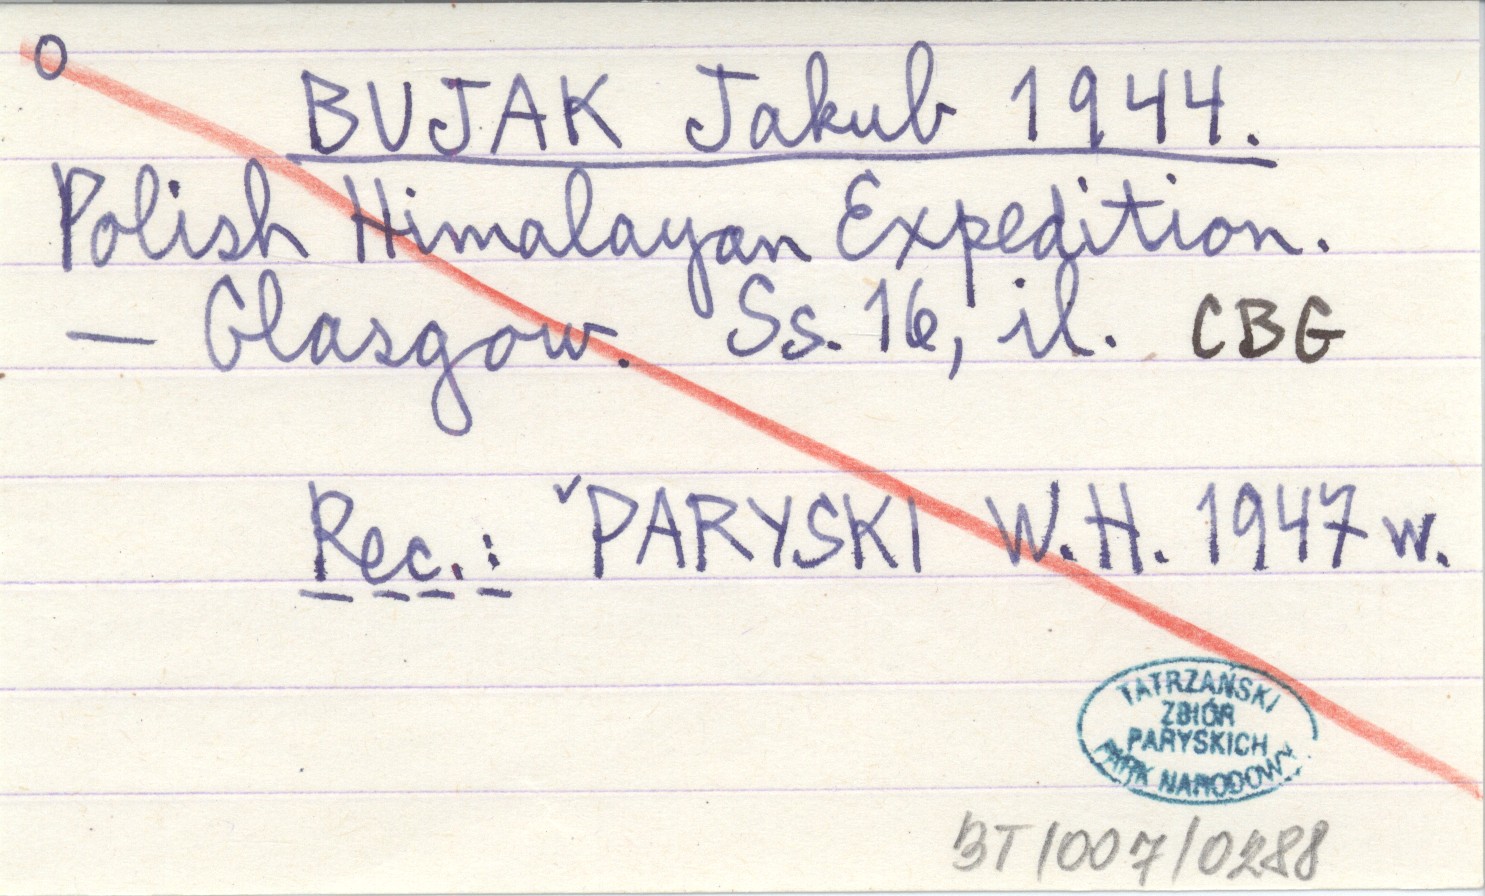 O
BUJAK Jakub 1944.
Polish Himalayan Expedition.
— Glasgow. Ss. 16, il. CBG
Rec.: ✓PARYSKI W.H. 1947 w.
TATRZAŃSKI
ZBIÓR
PARYSKICH
PARK NARODOWY
BT/007/0288